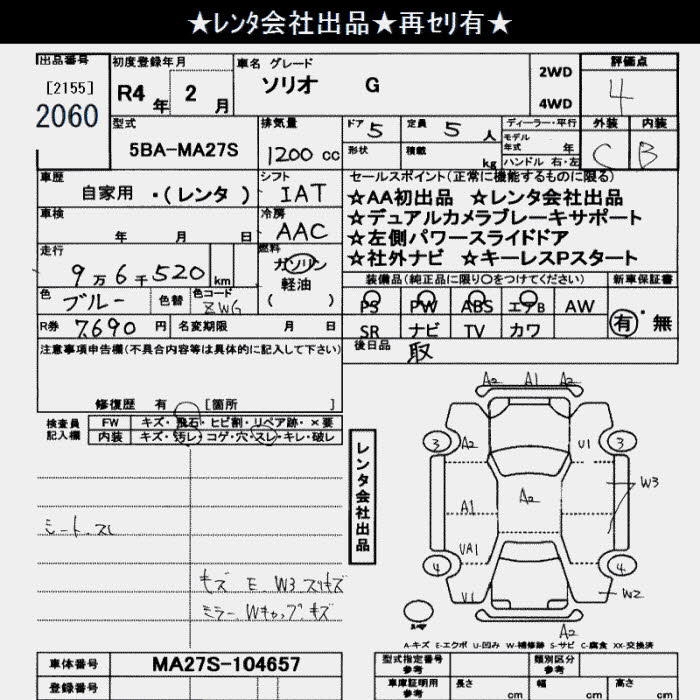 ★レンタ会社出品★再セリ有★
出品番号
[2155]
2060
初度登録年月
R4年 2月
車名 グレード
ソリオ G
2WD
4WD
評価点
4
外装 内装
C B
型式
5BA-MA27S
排気量
1200 cc
ドア 5
定員 5 人
形状
積載 kg
ディーラー・平行
モデル年式 年
ハンドル 右・左
車歴
自家用 ・(レンタ)
シフト
IAT
車検
年 月 日
冷房
AAC
走行
9万6千520 km
燃料
ガソリン
軽油
( )
色
ブルー
色替
色コード
ZWG
R券 7,690 円
名変期限 月 日
セールスポイント(正常に機能するものに限る)
☆AA初出品 ☆レンタ会社出品
☆デュアルカメラブレーキサポート
☆左側パワースライドドア
☆社外ナビ ☆キーレスPスタート
装備品(純正品に限り○をつけてください)
新車保証書
PS PW ABS エアB AW
SR ナビ TV カワ
有・無
後日品 取
注意事項申告欄(不具合内容等は具体的に記入して下さい)
修復歴 有 [箇所 ]
検査員記入欄
FW キズ・飛石・ヒビ割・リペア跡・×要
内装 キズ・汚レ・コゲ・穴・スレ・キレ・破レ
シート.スレ
キズ E. W3 スリキズ
ミラー.Wキャップ.キズ
レンタ会社出品
A2 A1 A2
3 A2 U1 3
W3
A2
A1
UA1
4 4
U1 W2
A2
A-キズ E-エクボ U-凹み W-補修跡 S-サビ C-腐食 XX-交換済
車体番号 MA27S-104657
登録番号
型式指定番号 参考
類別区分 参考
車庫証明用 参考
長さ cm
幅 cm
高さ cm